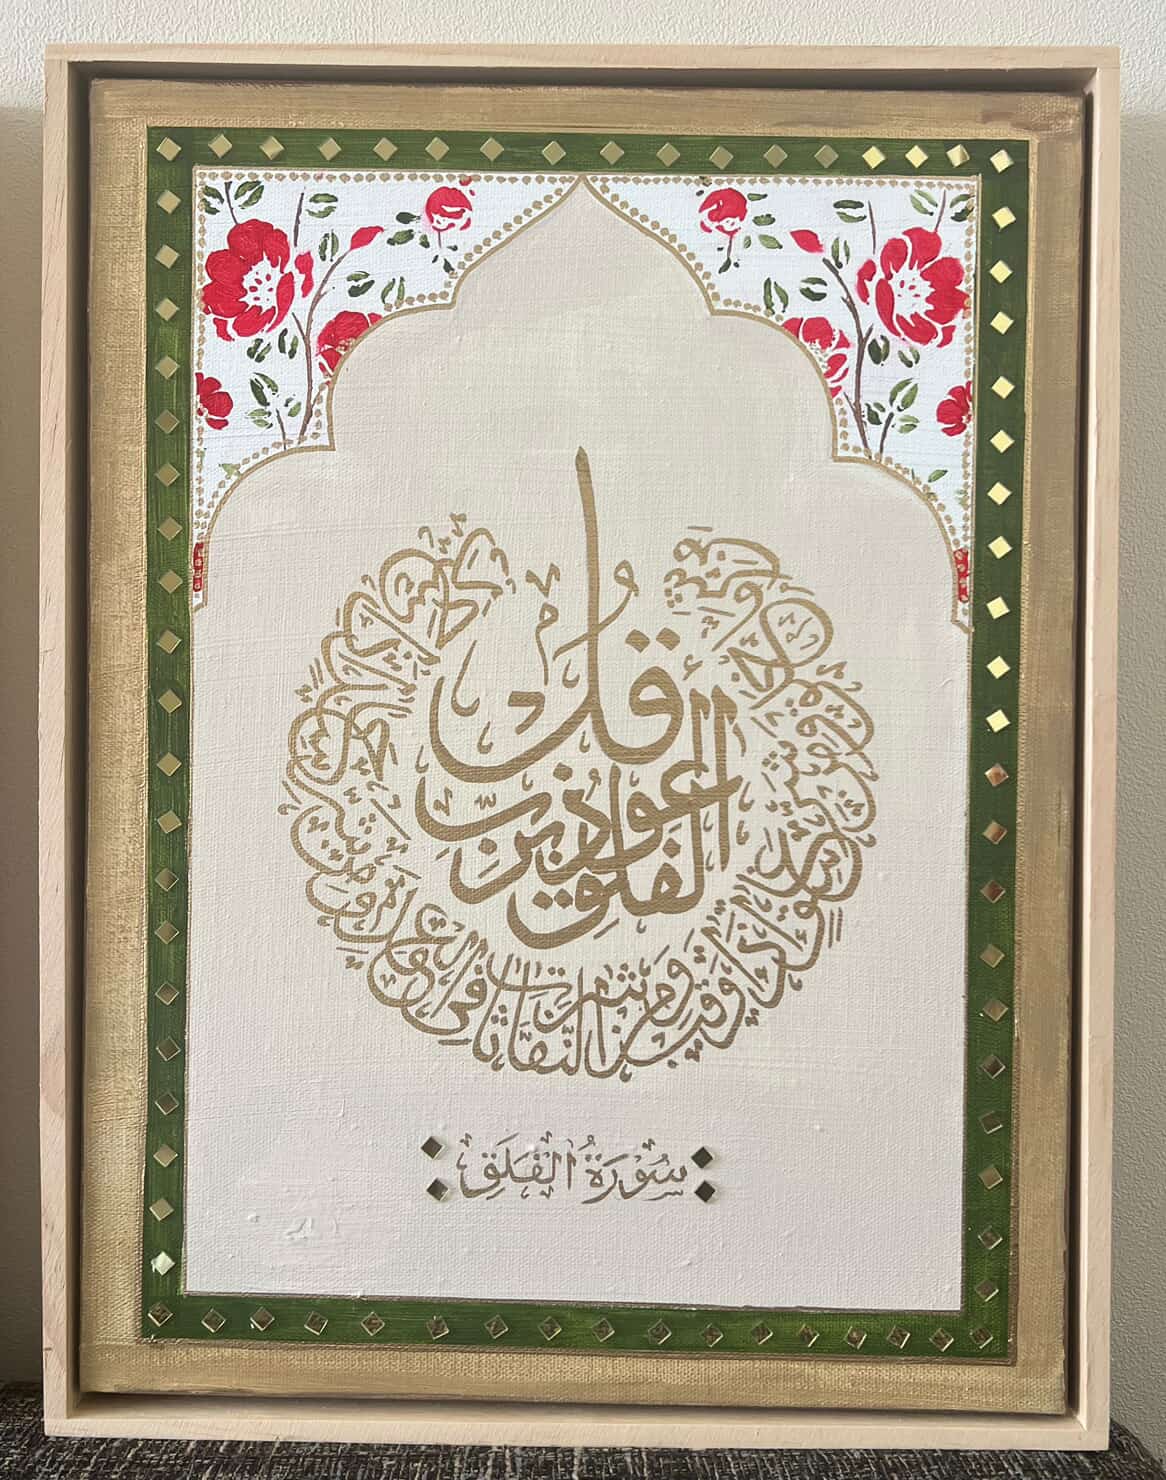 قُلْ أَعُوذُ بِرَبِّ الْفَلَقِ
مِن شَرِّ مَا خَلَقَ وَمِن شَرِّ غَاسِقٍ إِذَا وَقَبَ وَمِن شَرِّ النَّفَّاثَاتِ فِي الْعُقَدِ وَمِن شَرِّ حَاسِدٍ إِذَا حَسَدَ
سُوْرَةُ الْفَلَقِ